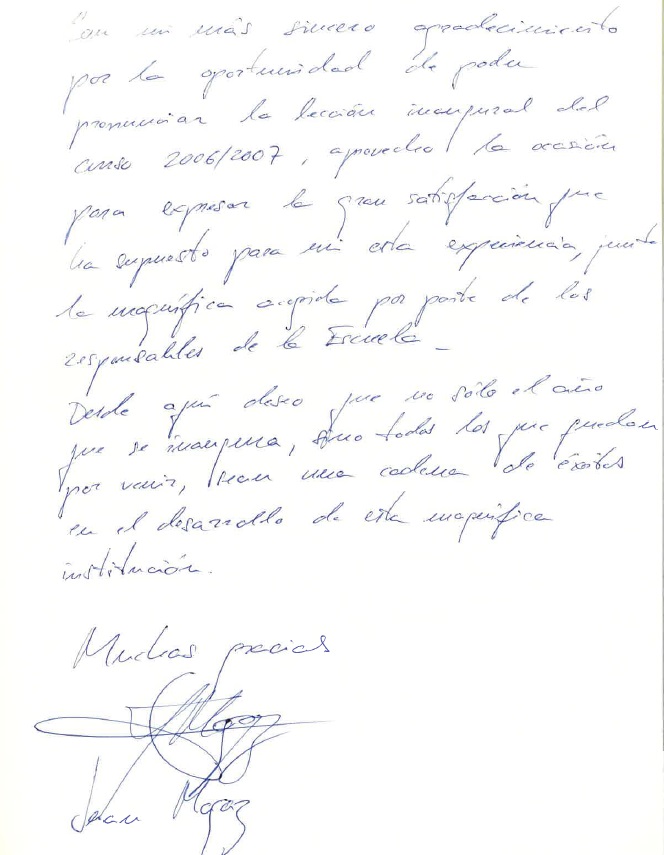 Con mi más sincero agradecimiento
por la oportunidad de poder
pronunciar la lección inaugural del
curso 2006/2007, aprovecho la ocasión
para expresar la gran satisfacción que
ha supuesto para mi esta experiencia, junto
la magnífica acogida por parte de los
responsables de la Escuela
Desde aquí deseo que no sólo el año
que se inaugura, sino todos los que puedan
por venir, sean una cadena de éxitos
en el desarrollo de esta magnífica
institución.
Muchas gracias
Juan Mogaz